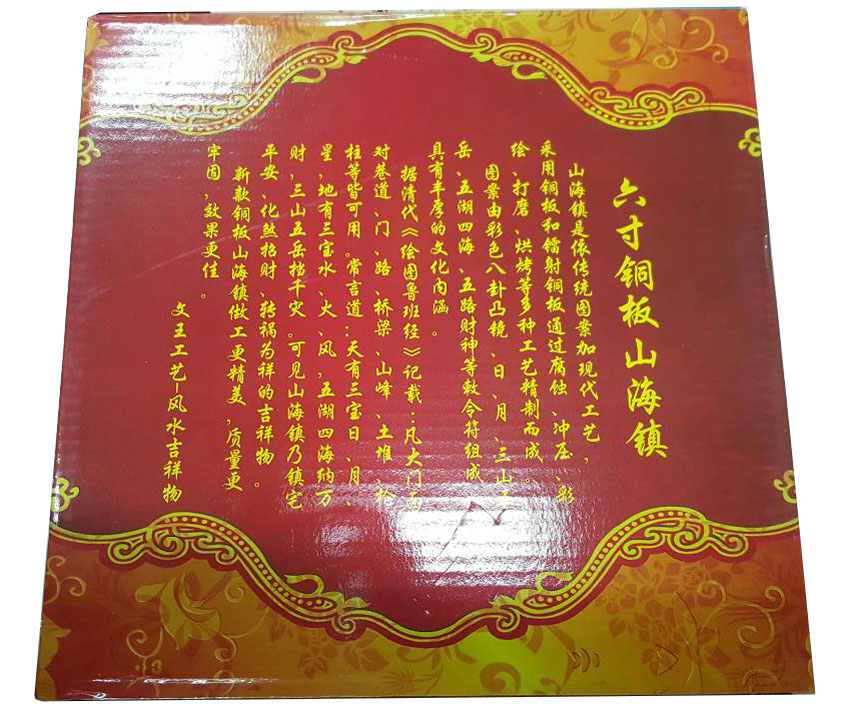 六寸铜板山海镇
山海镇是依传统图案加现代工艺，
采用铜板和镭射铜板通过腐蚀、冲压、彩
绘、打磨、烘烤等多种工艺精制而成。
图案由彩色八卦凸镜、日、月、三山五
岳、五湖四海、五路财神等敕令符组成，
具有丰厚的文化内涵。
据清代《绘图鲁班经》记载：凡大门面
对巷道、门、路、桥梁、山峰、土堆、枪
柱等皆可用。常言道：天有三宝日、月、
星，地有三宝水、火、风，五湖四海纳万
财，三山五岳挡千灾。可见山海镇乃镇宅
平安、化煞招财、转祸为祥的吉祥物。
新款铜板山海镇做工更精美，质量更
牢固，效果更佳。
文王工艺—风水吉祥物